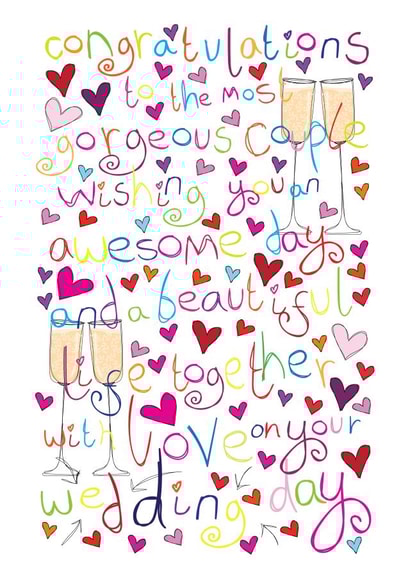 congratulations
to the most
gorgeous couple
wishing you an
awesome day
and a beautiful
life together
with love on your
wedding day